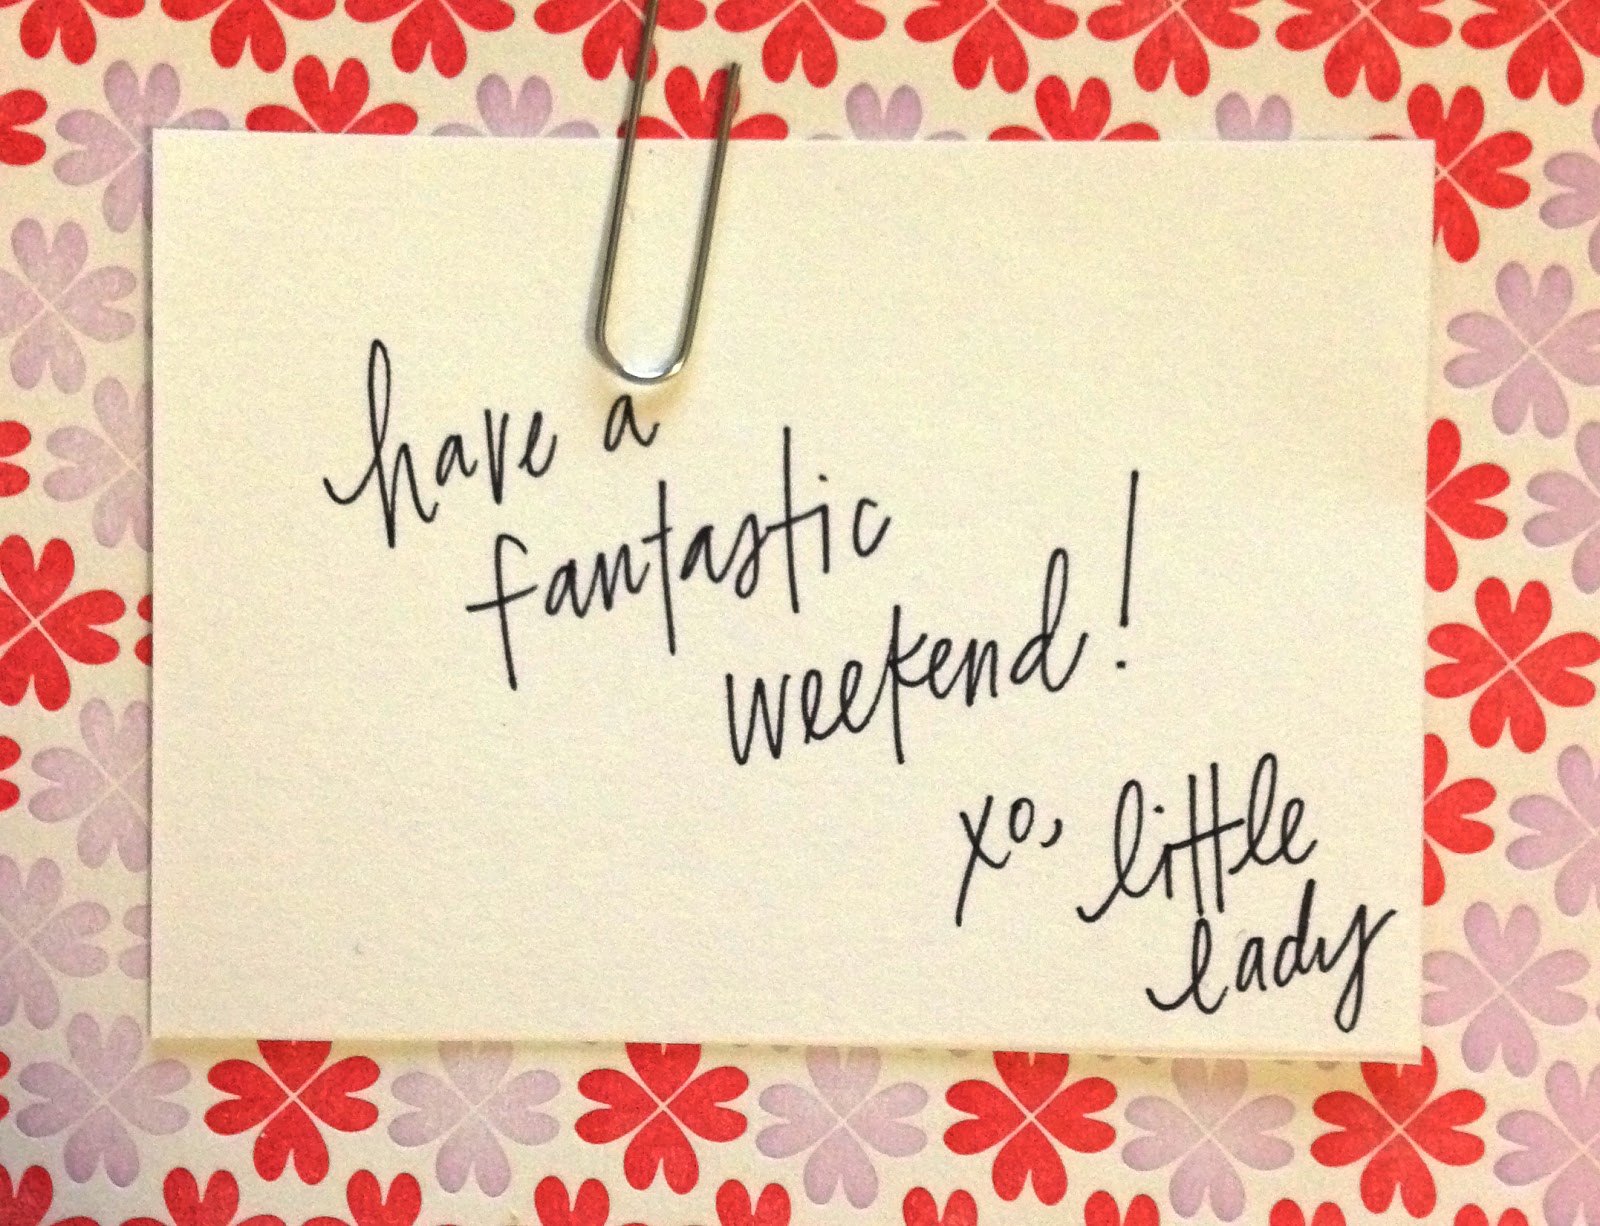 have a
fantastic
weekend!
xo, little
lady